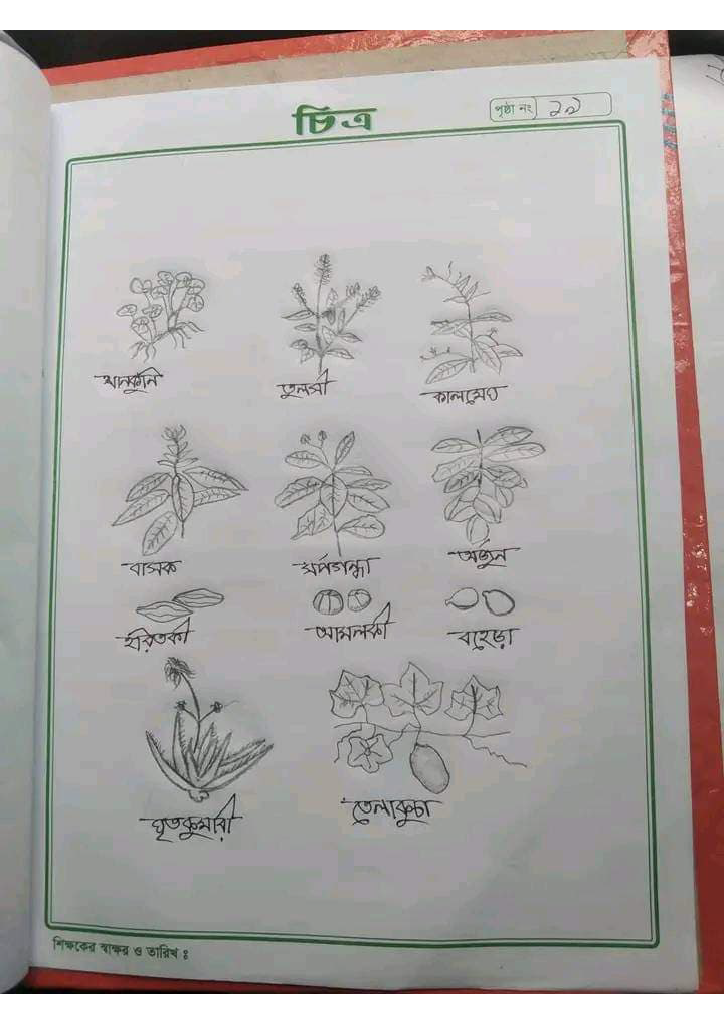 চিত্র
পৃষ্ঠা নং ২৯
থানকুনি তুলসী কালমেঘ
বাসক সর্পগন্ধা অর্জুন
হরিতকী আমলকী বহেড়া
ঘৃতকুমারী তেলাকুচা
শিক্ষকের স্বাক্ষর ও তারিখ ঃ